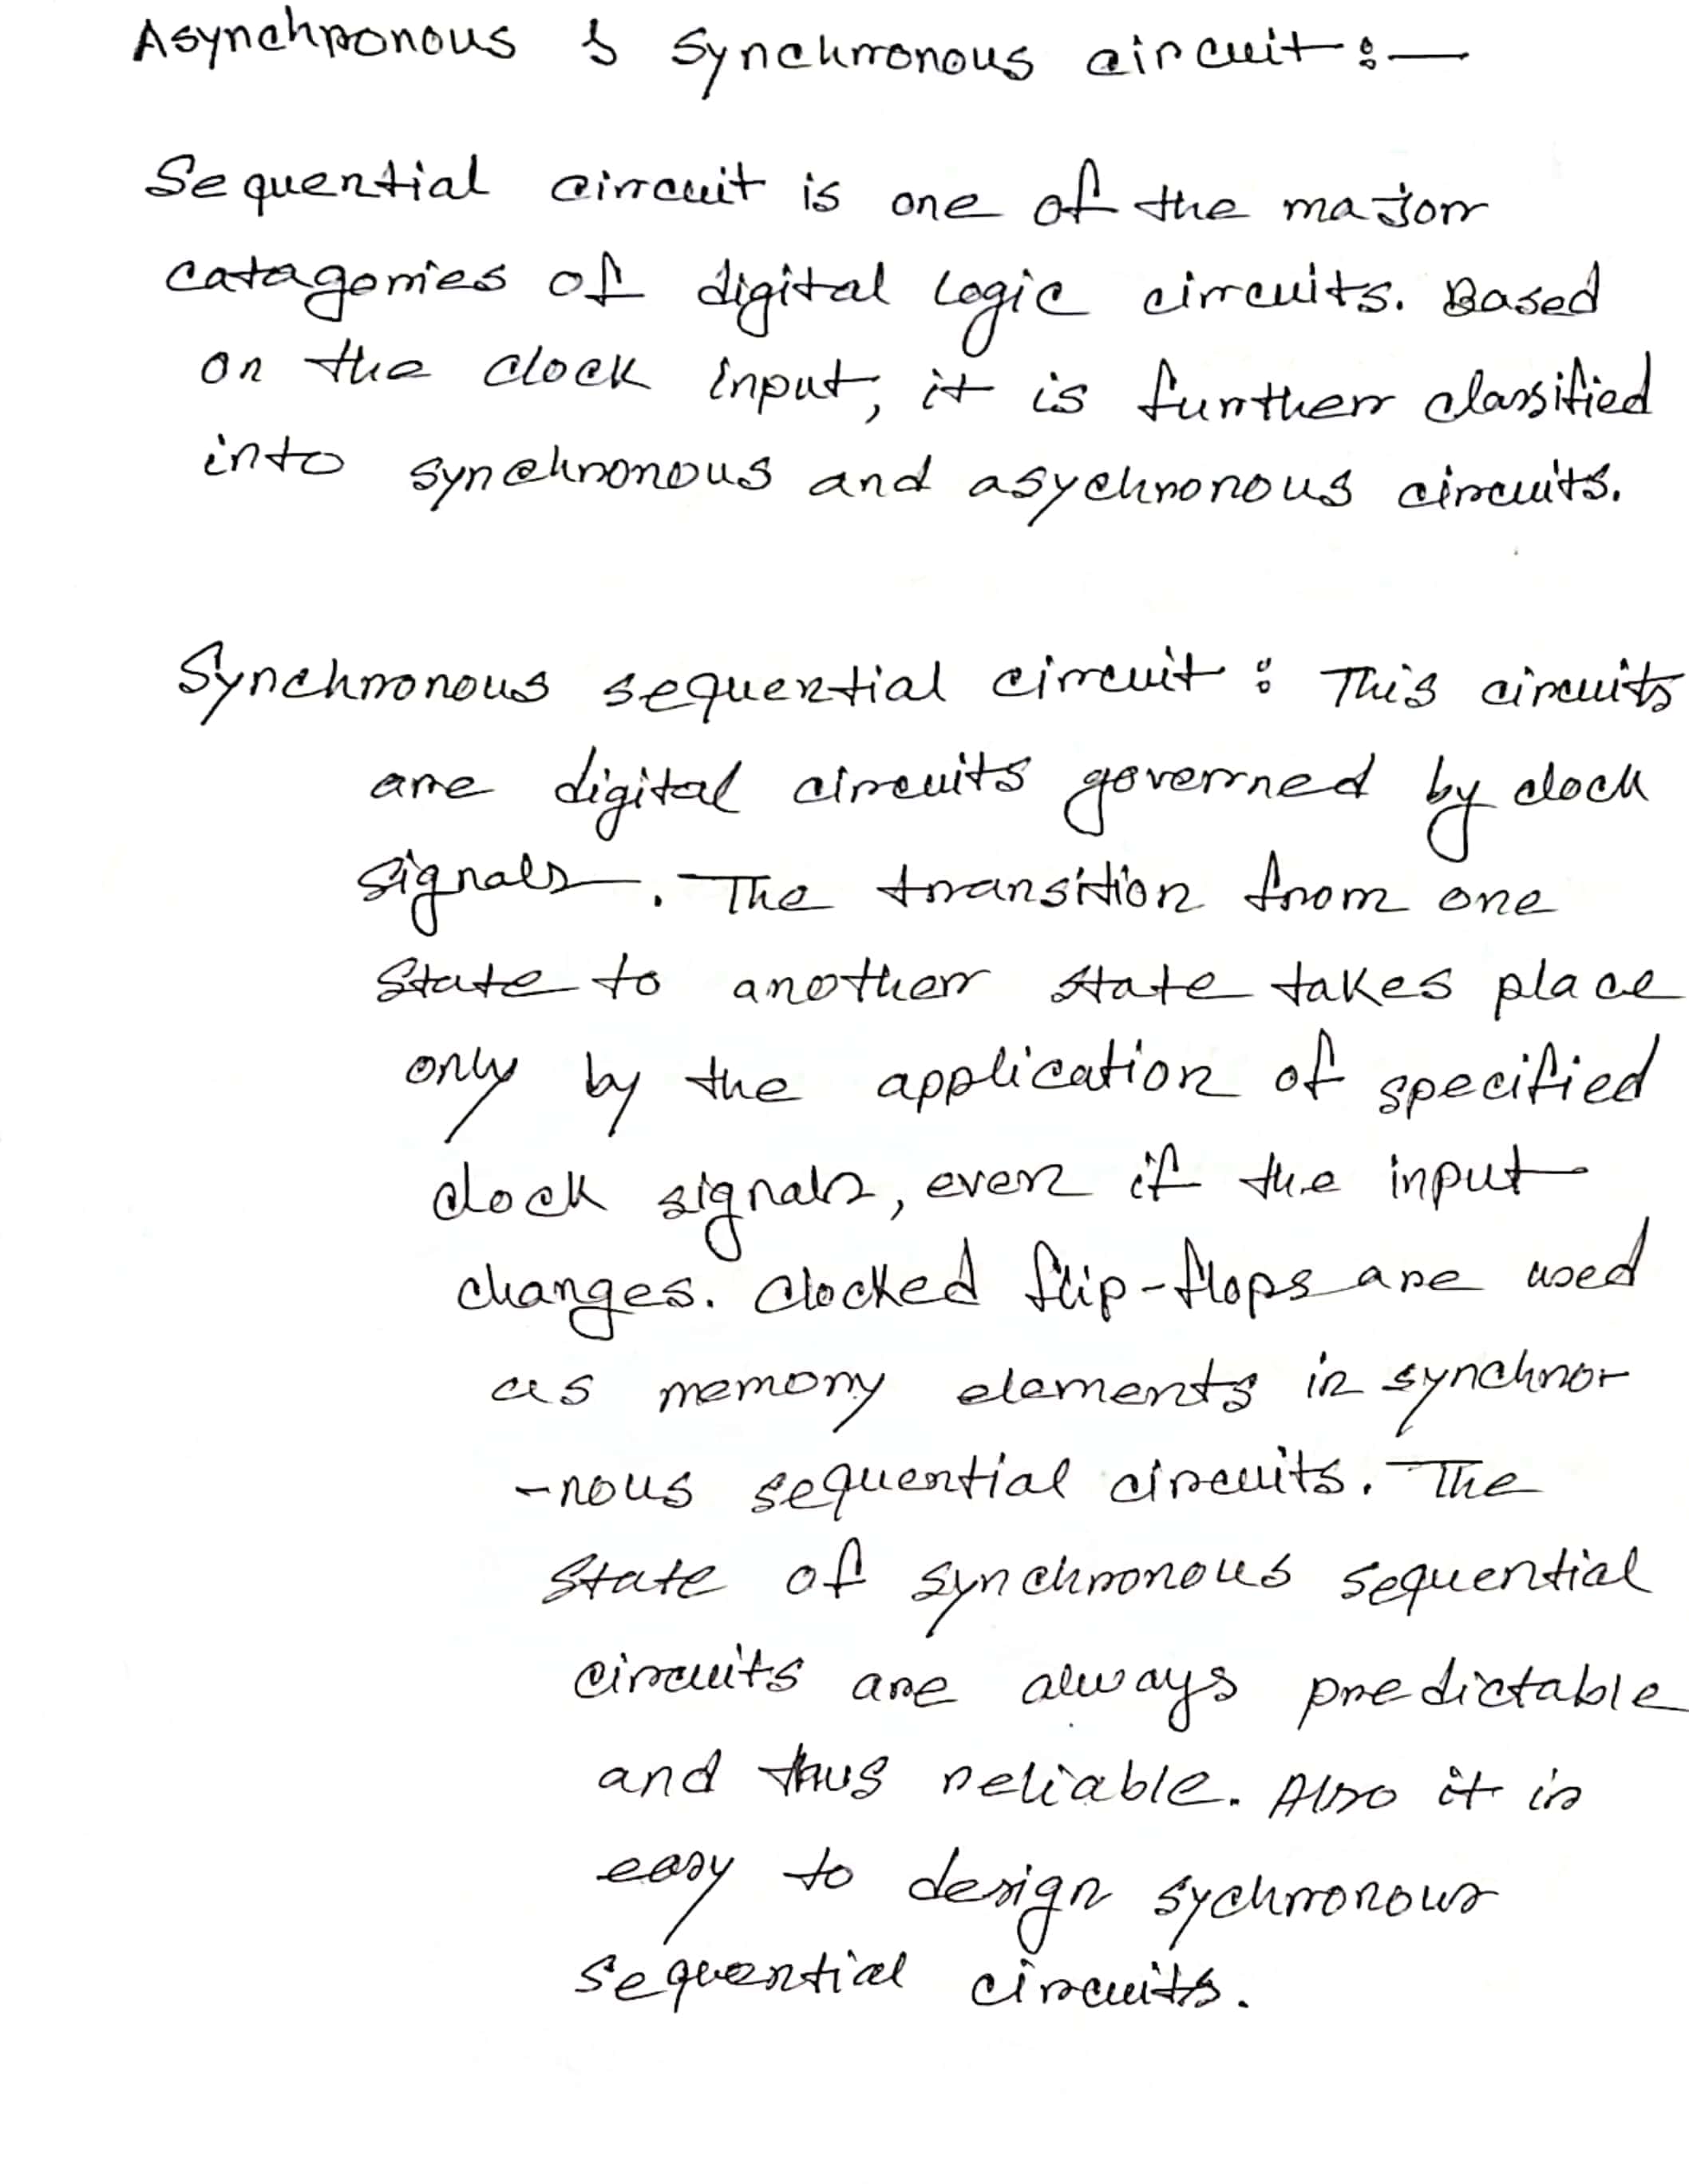 Asynchronous & Synchronous circuit:—
Sequential circuit is one of the major
catagories of digital logic circuits. Based
on the clock input, it is further classified
into synchronous and asychronous circuits.
Synchronous sequential circuit : This circuits
are digital circuits governed by clock
signals. The transition from one
state to another state takes place
only by the application of specified
clock signals, even if the input
changes. Clocked flip-flops are used
as memory elements in synchro-
-nous sequential circuits. The
state of synchronous sequential
circuits are always predictable
and thus reliable. Also it is
easy to design sychronous
sequential circuits.